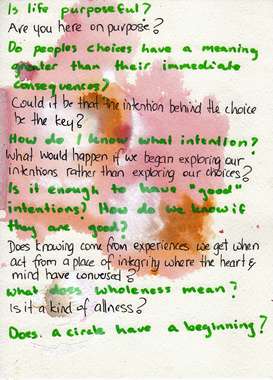 Is life purposeful?
Are you here on purpose?
Do peoples choices have a meaning
greater than their immediate
consequences?
Could it be that the intention behind the choice
be the key?
How do I know what intention?
What would happen if we began exploring our
intentions rather than exploring our choices?
Is it enough to have "good"
intentions? How do we know if
they are good?
Does knowing come from experiences we get when
act from a place of integrity where the heart &
mind have conversed?
What does wholeness mean?
Is it a kind of allness?
Does a circle have a beginning?